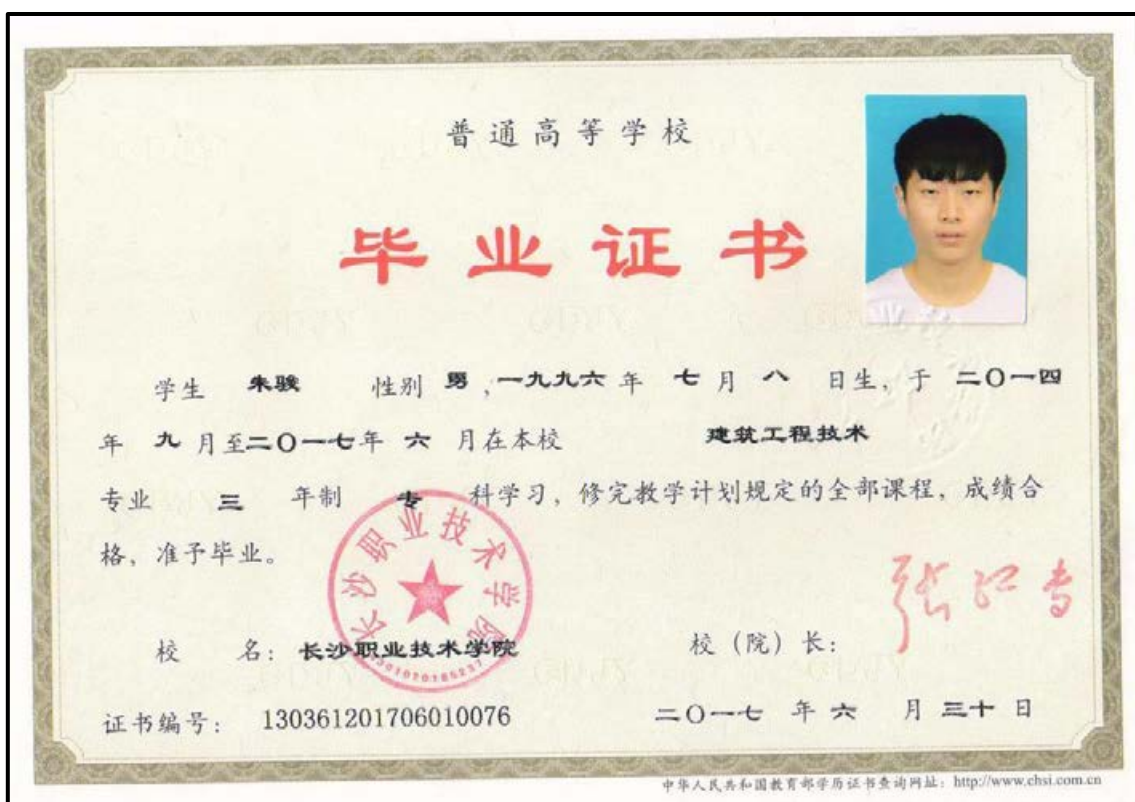 普通高等学校
毕业证书
学生 朱骏 性别 男，一九九六年 七月 八 日生，于 二〇一四
年 九 月至二〇一七年 六 月在本校 建筑工程技术
专业 三 年制 专 科学习，修完教学计划规定的全部课程，成绩合
格，准予毕业。
长沙职业技术学院
校 名：长沙职业技术学院 校（院）长：
证书编号：130361201706010076 二〇一七 年 六 月 三十 日
中华人民共和国教育部学历证书查询网址：http://www.chsi.com.cn